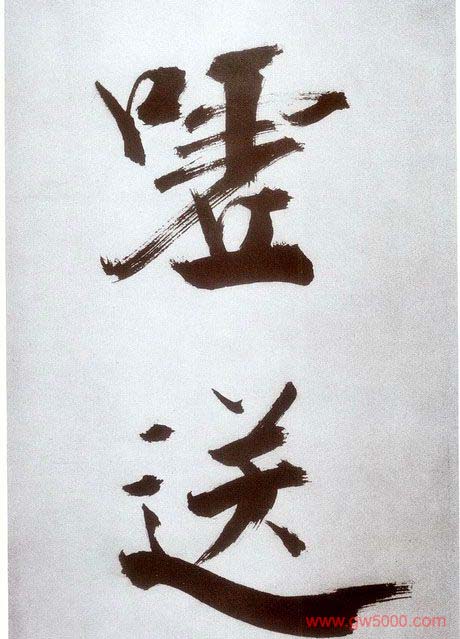 嘘
送
www.gw5000.com